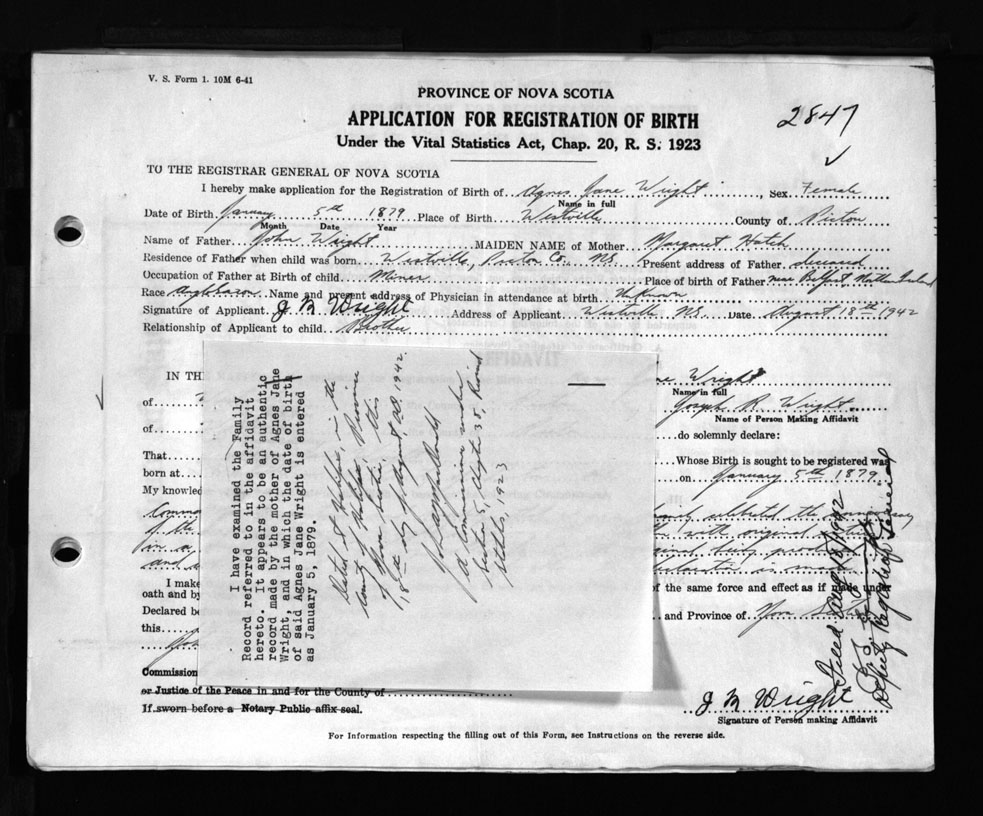 V. S. Form 1. 10M 6-41
PROVINCE OF NOVA SCOTIA
APPLICATION FOR REGISTRATION OF BIRTH
2847
Under the Vital Statistics Act, Chap. 20, R. S. 1923
TO THE REGISTRAR GENERAL OF NOVA SCOTIA
I hereby make application for the Registration of Birth of Agnes Jane Wright, Sex Female
Name in full
Date of Birth January 5th 1879 Place of Birth Westville County of Pictou
Month Date Year
Name of Father John Wright MAIDEN NAME of Mother Margaret Hatch
Residence of Father when child was born Westville, Pictou Co. N.S. Present address of Father deceased
Occupation of Father at Birth of child Miner Place of birth of Father near Belford, Northumberland
Race Anglo Saxon Name and present address of Physician in attendance at birth Unknown
Signature of Applicant J R Wright Address of Applicant Westville N.S. Date August 18th 1942
Relationship of Applicant to child Brother
IN TH
ne Wright
Name in full
of
Joseph R. Wright
Name of Person Making Affidavit
of
do solemnly declare:
That
Whose Birth is sought to be registered was
born at
on January 5th 1879
My knowled
I make
of the same force and effect as if made under
oath and by
Declared be
and Province of Nova Scotia
this
Commission
or Justice of the Peace in and for the County of
If sworn before a Notary Public affix seal.
J R Wright
Signature of Person making Affidavit
For Information respecting the filling out of this Form, see Instructions on the reverse side.
I have examined the Family
Record referred to in the affidavit
hereto. It appears to be an authentic
record made by the mother of Agnes Jane
Wright, and in which the date of birth
of said Agnes Jane Wright is entered
as January 5, 1879.
Dated at Halifax in the
County of Halifax Province
of Nova Scotia this
18th day of August AD. 1942
a Commissioner under
Section 5, Chapter 38 Revised
Statutes, 1923
Filed Aug 18/1942
Deputy Registrar General